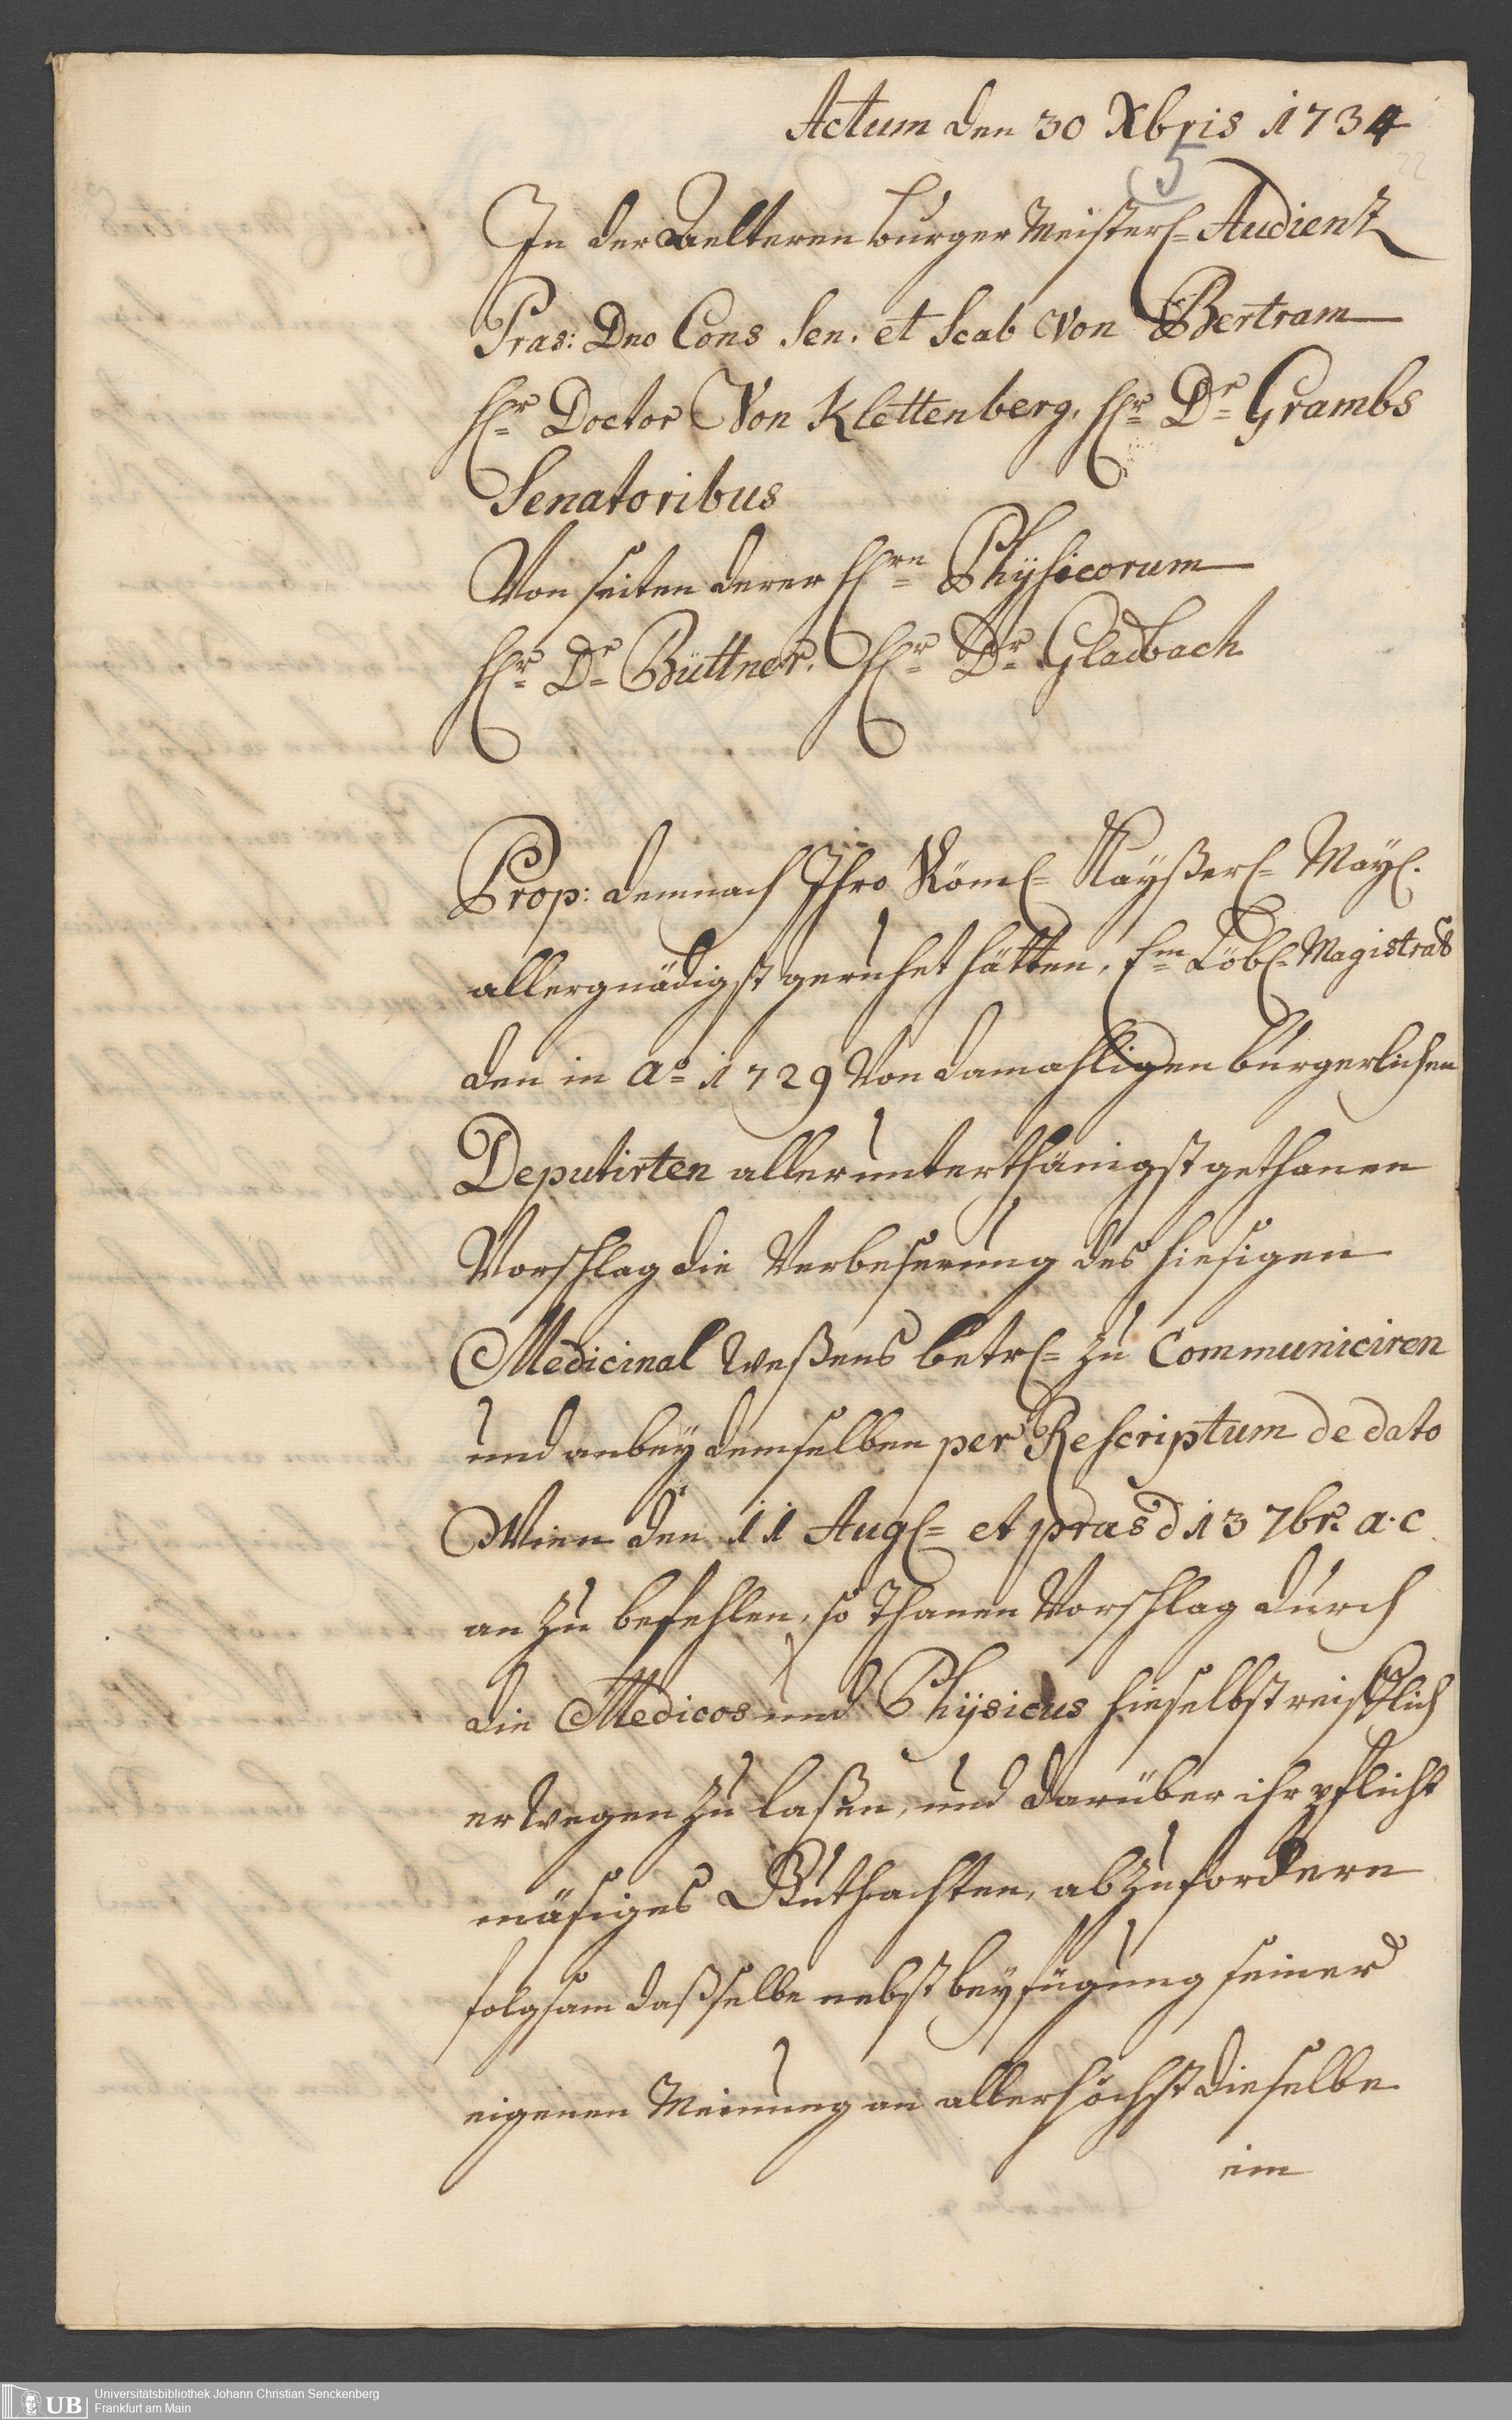 Actum den 30 Xbris 1734
5
22
In der Aelteren burger Meisterl= Audientz
Præs: Dno Cons Sen. et Scab Von Bertram
Hr= Doctor Von Klettenberg, Hr= Dr= Grambs
Senatoribus
Von seiten derer Hrn= Physicorum
Hr= Dr= Büttner. Hr= Dr= Gladbach
Prop: demnach Ihro Röml= Kayßerl= Mayl.
allergnädigst geruhet hätten, Em Löbl= Magistrat
den in Ao= 1729 Von damahligen bürgerlichen
Deputirten allerunterthänigst gethanen
Vorschlag die Verbeserung des hiesigen
Medicinal Weßens betrl= zu Communiciren
und anbey demselben per Rescriptum de dato
Wien den 11 Augl= et præs d 13 7br. a. c
an zu befehlen, so thanen Vorschlag durch
die Medicos und Physicus hieselbst reifflich
erwegen zu laßen, und darüber ihr pflicht
mäsiges Guthachten, abzufordern
folgsam daßselbe nebst beyfügung seiner
eigenen Meinung an allerhöchst dieselbe
im
UB Universitätsbibliothek Johann Christian Senckenberg
Frankfurt am Main